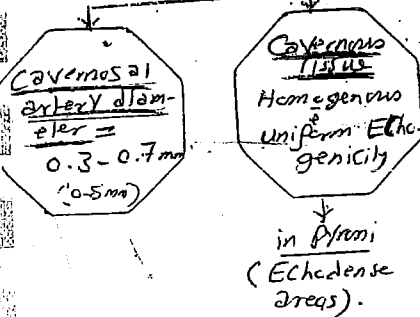 Cavernosal
artery diam-
eter =
0.3 - 0.7 mm
(0.5 mm)
Cavernous
Tissue
Homogenous
&
uniform Echo-
genicity
in Pyroni
(Echodense
areas).